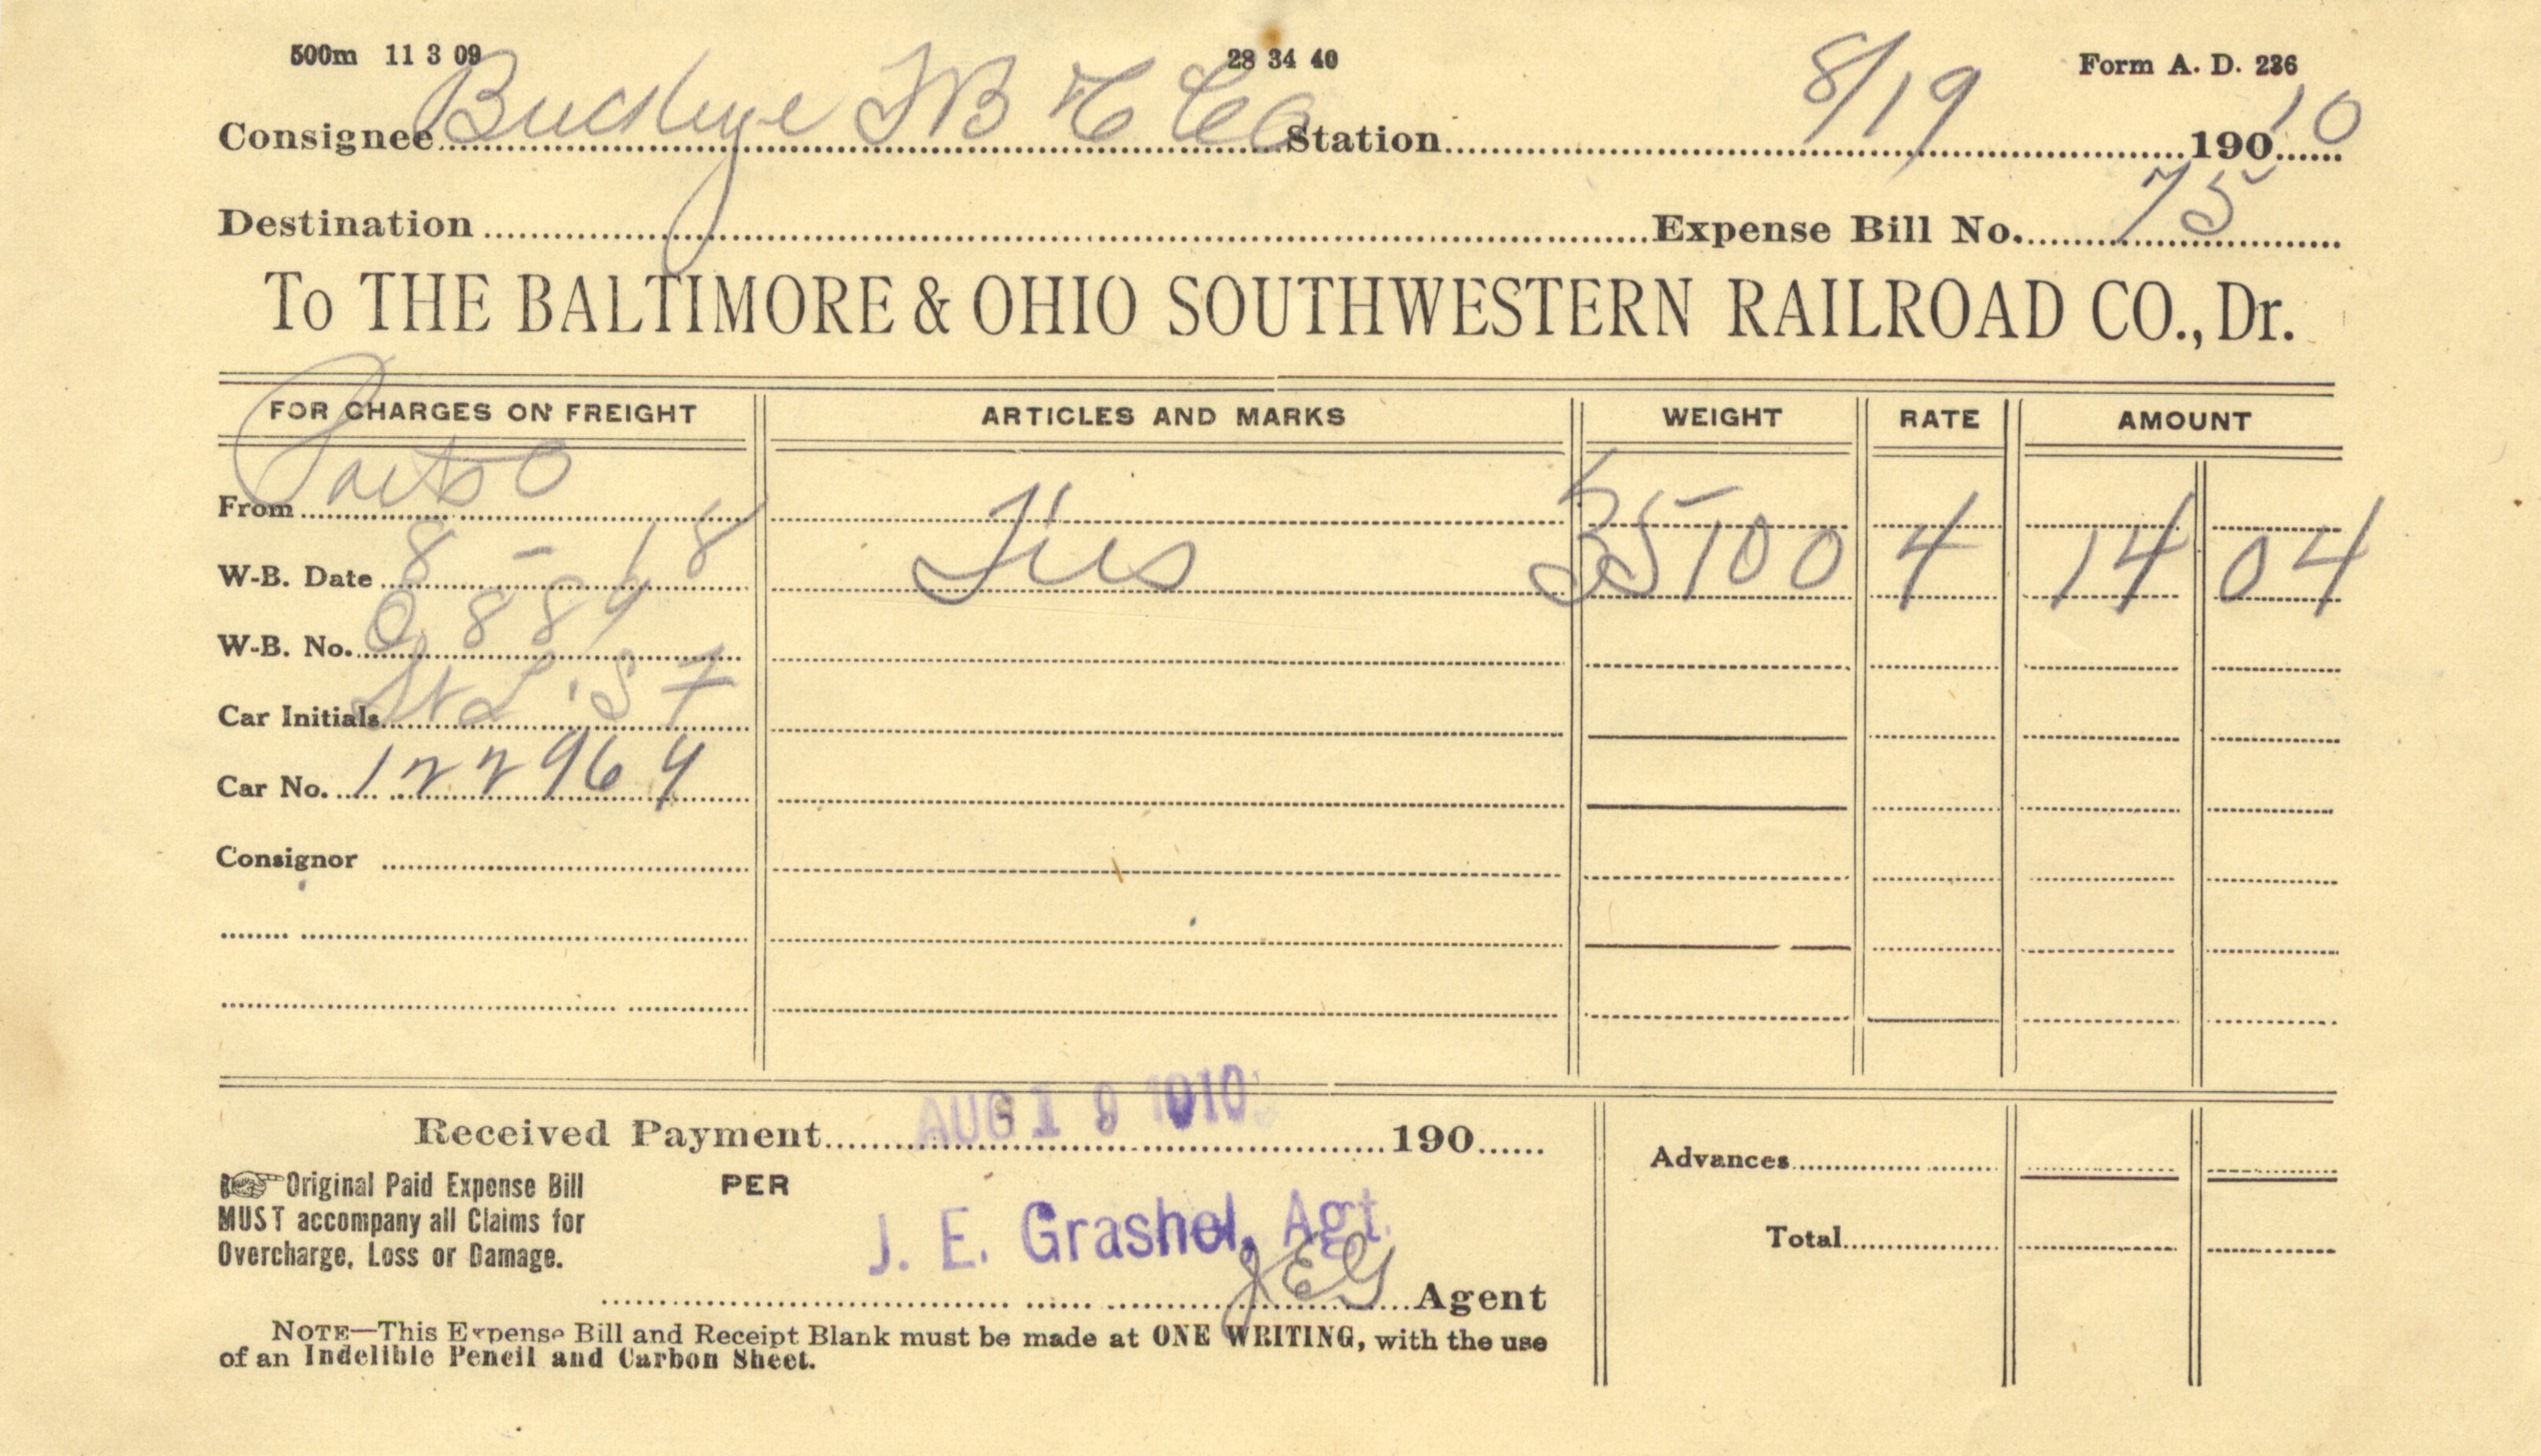 500m 11 3 09 28 34 40 Form A. D. 236
Consignee Buckeye F B & Co Station 8/19 190 10
Destination Expense Bill No. 75
To THE BALTIMORE & OHIO SOUTHWESTERN RAILROAD CO., Dr.
FOR CHARGES ON FREIGHT ARTICLES AND MARKS WEIGHT RATE AMOUNT
From Ports O 35100 4 14 04
W-B. Date 8 - 18
W-B. No.
Car Initials
Car No. 122964
Consignor
AUG 19 1910
Received Payment 190
Advances
Original Paid Expense Bill PER
MUST accompany all Claims for
Overcharge, Loss or Damage.
J. E. Grashel, Agt.
Total
JEG Agent
NOTE—This Expense Bill and Receipt Blank must be made at ONE WRITING, with the use
of an Indelible Pencil and Carbon Sheet.